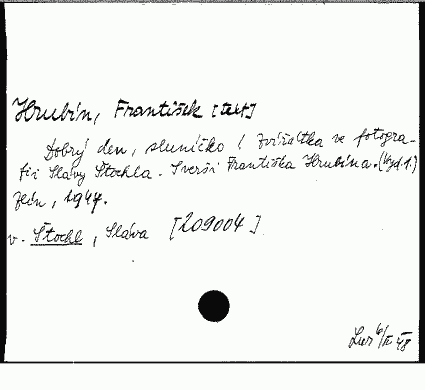 Hrubín, František [text]
Dobrý den, sluníčko! Zvířátka ve fotogra-
fii Slávy Štochla. S verši Františka Hrubína. (Vyd. 1.)
Zlín, 1947.
v. Štochl, Sláva [209004]